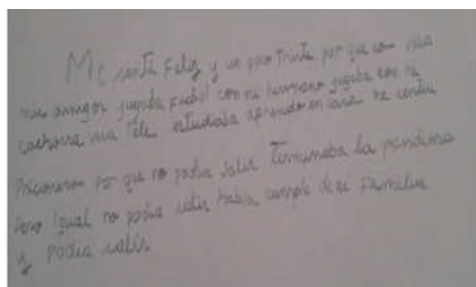 Me sentí Feliz y un poco triste por que con mis
mis amigos jugaba Futbol con mi hermano jugaba con mi
cachorra, veia Tele estudiaba aprendo en casa me sentia
Pricionero por que no podia salir Terminaba la pandemia
Pero Igual no podia salir habia cumple de mi Familia
y Podia salir.